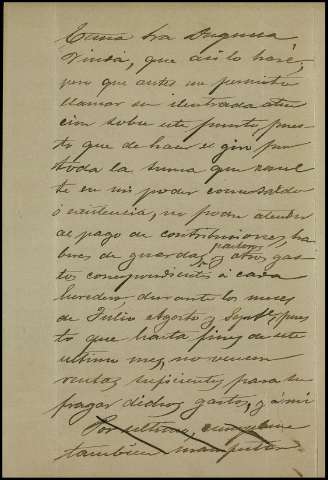 Exma Sra Duquesa
Viuda, que así lo haré,
pero que antes me permito
llamar su ilustrada aten
cion sobre este punto, pues
to que de hacer el giro por
toda la suma que resul
te en mi poder como saldo
ó existencia, no podre atender
al pago de contribuciones, ha
beres de guardas, pastores y otros gas
tos correspondientes á cada
heredero, durante los meses
de Julio Agosto y Septe, pues
to que hasta fines de este
ultimo mes, no vencen
rentas suficientes para su
fragar dichos gastos, y á mi
Por ultimo,
tambien